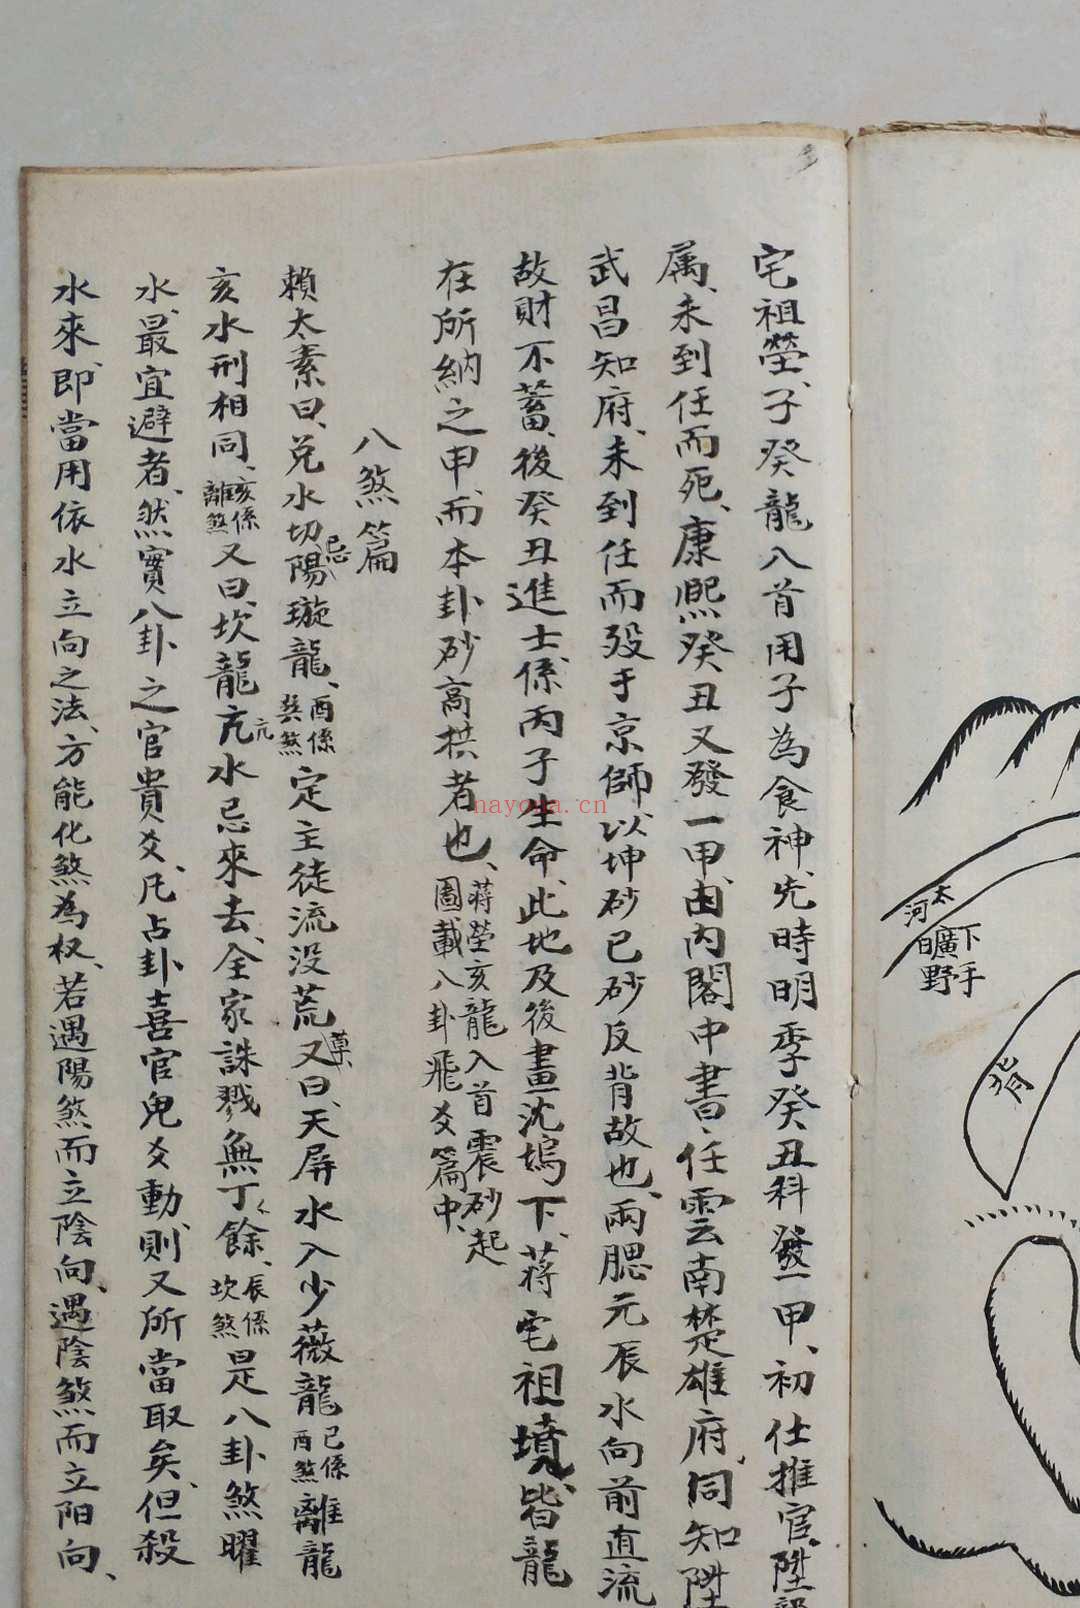 宅祖塋、子癸龍入首用子為食神、先時明季癸丑科發一甲、初仕推官、陞部
属、未到任而死、康熙癸丑又發一甲、由内閣中書、任雲南楚雄府、同知陞
武昌知府、未到任而殁于京師、以坤砂巳砂反背故也、兩腮元辰水向前直流
故財不蓄、後癸丑進士、係丙子生命、此地及後畫沈塢下、蔣宅祖墳、皆龍
在所納之甲、而本卦砂高拱者也、
蔣塋亥龍入首震砂起
圖載八卦飛爻篇中、
八煞篇
賴太素曰、兑水切忌陽璇龍、
酉係
巽煞
定主徒流没荒草、又曰、天屏水入少薇龍
巳係
酉煞
離龍
亥水刑相同、
亥係
離煞
又曰、坎龍亢亢水忌來去、全家誅戮無丁餘、
辰係
坎煞
是八卦煞曜
水、最宜避者、然實八卦之官貴爻、凡占卦喜官鬼爻動、則又所當取矣、但殺
水來、即當用依水立向之法、方能化煞為权、若遇陽煞而立陰向、遇陰煞而立阳向、
太
河
下手
曠野
背
nayona.cn